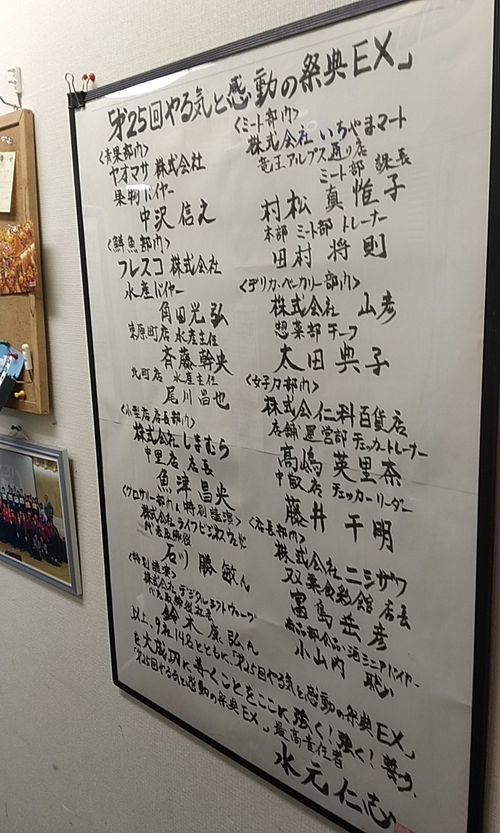 「第25回やる気と感動の祭典EX」
<青果部門>
ヤオマサ 株式会社
果物バイヤー
中沢 信之
<鮮魚部門>
フレスコ 株式会社
水産バイヤー
角田光弘
東原町店 水産主任
斉藤幹央
北町店 水産主任
尾川昌也
<小型店 店長部門>
株式会社 しまむら
中里店 店長
魚津昌央
<グロサリー部門&特別講演>
株式会社 ライフビジネスウェザー
代表取締役
石川 勝敏さん
<特別講演>
株式会社 デジタルシフトウェーブ
代表取締役社長
鈴木康弘さん
<ミート部門>
株式会社 いちやまマート
竜王アルプス通り店
ミート部 課長
村松 真惟子
本部 ミート部 トレーナー
田村 将則
<デリカ・ベーカリー部門>
株式会社 山彦
惣菜部チーフ
太田典子
<女子力部門>
株式会仁科百貨店
店舗運営部 チェッカートレーナー
髙嶋英里奈
店 チェッカーリーダー
藤井 千明
<店長部門>
株式会社 ニシザワ
双葉食彩館 店長
富島岳彦
商品部食品・酒 シニアバイヤー
小山内 聡
以上、9社14名とともに、「第25回やる気と感動の祭典EX」
を大成功に導くことをここに強く!強く!誓う。
「第25回やる気と感動の祭典EX」 最高責任者
水元仁志